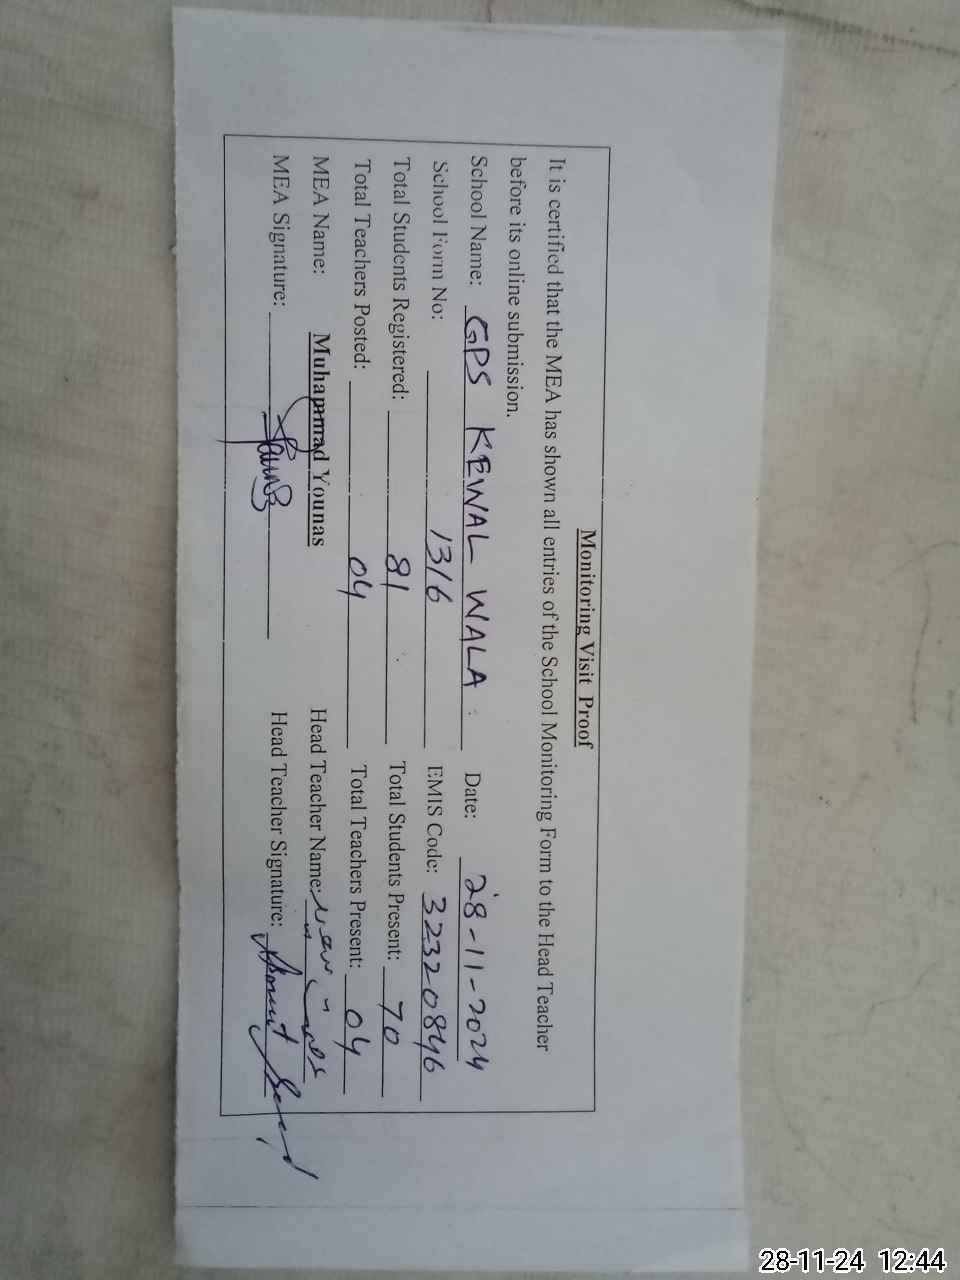 Monitoring Visit Proof
It is certified that the MEA has shown all entries of the School Monitoring Form to the Head Teacher
before its online submission.
School Name: GPS KEWAL WALA Date: 28-11-2024
School Form No: 1316 EMIS Code: 32320846
Total Students Registered: 81 Total Students Present: 70
Total Teachers Posted: 04 Total Teachers Present: 04
MEA Name: Muhammad Younas Head Teacher Name:
MEA Signature: Head Teacher Signature:
28-11-24 12:44